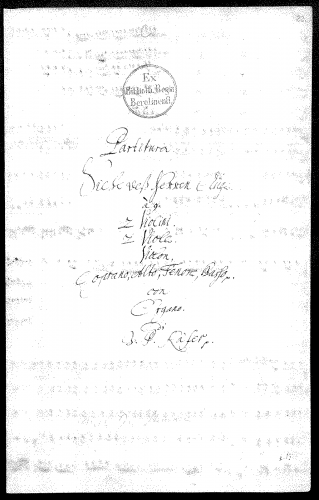 Ex
Biblioth. Regia
Berolinensi.
Partitura
Siehe deß Herren
à 9.
2 Violini
2 Viole.
Violon.
Soprano, Alto, Tenore, Basso,
con
Organo.
J. P. Käfer.